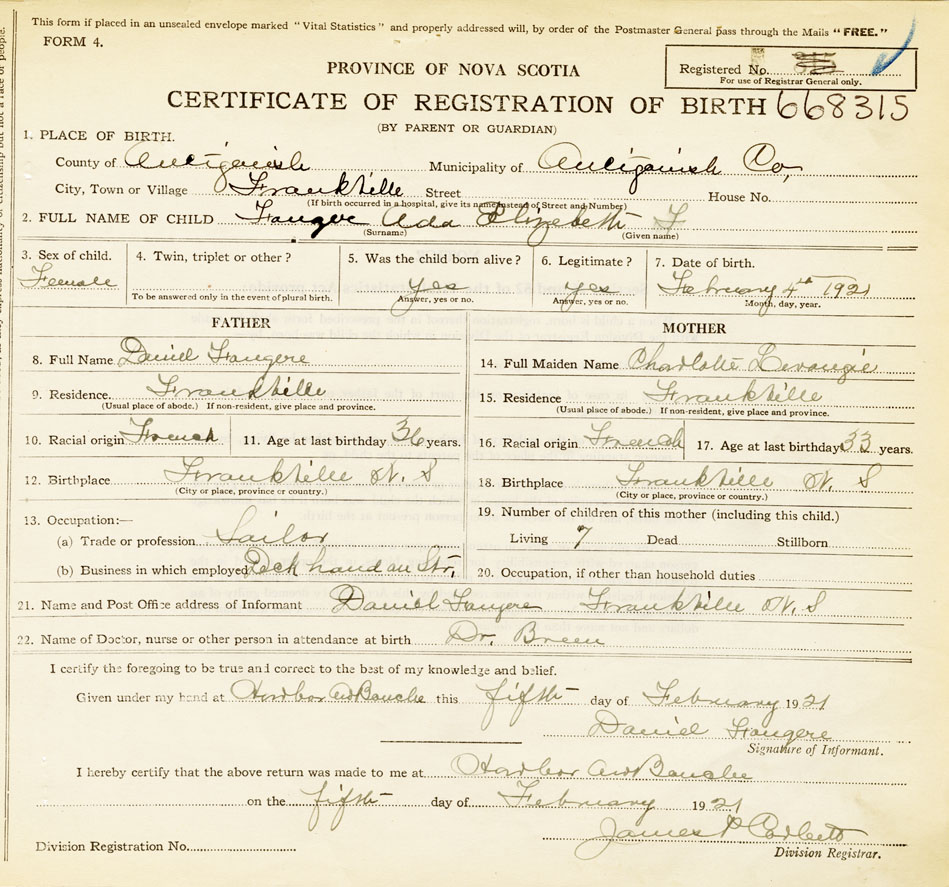 This form if placed in an unsealed envelope marked "Vital Statistics" and properly addressed will, by order of the Postmaster General pass through the Mails "FREE."
FORM 4.
Registered No.
For use of Registrar General only.
PROVINCE OF NOVA SCOTIA
CERTIFICATE OF REGISTRATION OF BIRTH 668315
(BY PARENT OR GUARDIAN)
1. PLACE OF BIRTH.
County of Antigonish Municipality of Antigonish Co,
City, Town or Village Frankville Street House No.
(If birth occurred in a hospital, give its name instead of Street and Number)
2. FULL NAME OF CHILD Fougere Ada Elizabeth F
(Surname) (Given name)
3. Sex of child. 4. Twin, triplet or other ? 5. Was the child born alive ? 6. Legitimate ? 7. Date of birth.
Female yes yes February 4th 1921
To be answered only in the event of plural birth. Answer, yes or no. Answer, yes or no. Month, day, year.
FATHER MOTHER
8. Full Name Daniel Fougere 14. Full Maiden Name Charlotte Levangie
9. Residence. Frankville 15. Residence Frankville
(Usual place of abode.) If non-resident, give place and province. (Usual place of abode.) If non-resident, give place and province.
10. Racial origin French 11. Age at last birthday 36 years. 16. Racial origin French 17. Age at last birthday 33 years.
12. Birthplace Frankville N. S 18. Birthplace Frankville N. S
(City or place, province or country.) (City or place, province or country.)
13. Occupation:— 19. Number of children of this mother (including this child.)
(a) Trade or profession Sailor Living 7 Dead Stillborn
(b) Business in which employed Deck hand on Str, 20. Occupation, if other than household duties
21. Name and Post Office address of Informant Daniel Fougere Frankville N. S
22. Name of Doctor, nurse or other person in attendance at birth Dr. Breen
I certify the foregoing to be true and correct to the best of my knowledge and belief.
Given under my hand at Harbor Au Bouche this fifth day of February 1921
Daniel Fougere
Signature of Informant.
I hereby certify that the above return was made to me at Harbor Au Bouche
on the fifth day of February 1921
James P Corbett
Division Registration No. Division Registrar.